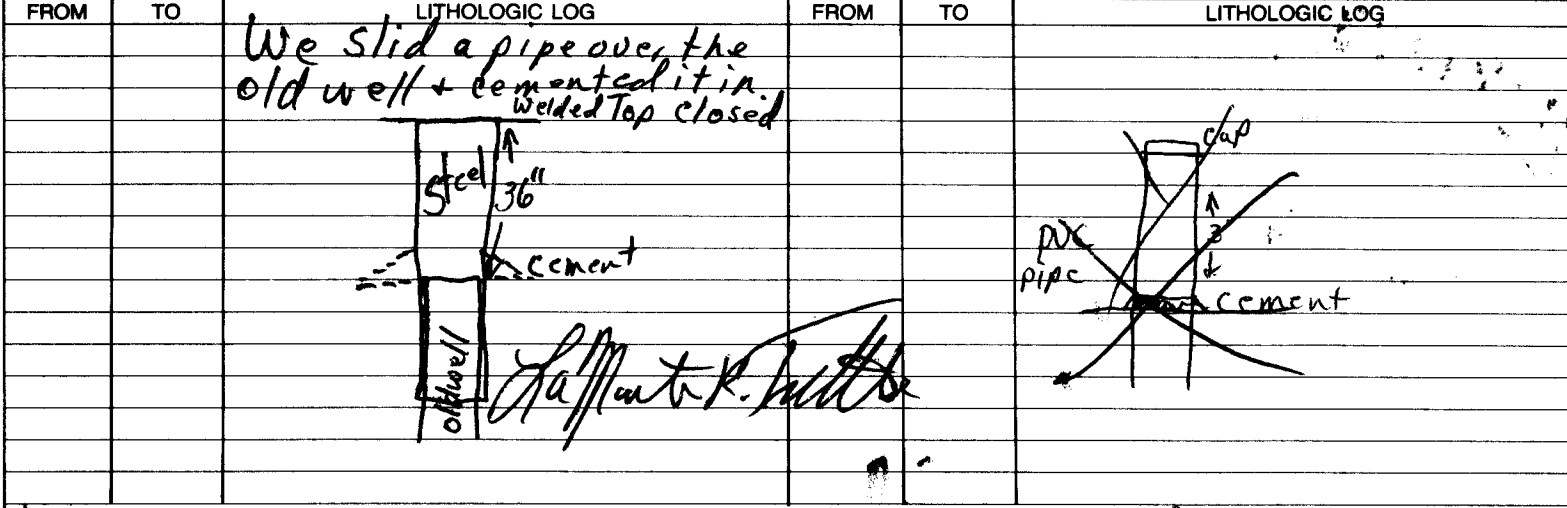 FROM TO LITHOLOGIC LOG FROM TO LITHOLOGIC LOG
We slid a pipe over the
old well + cemented it in
Welded Top Closed
Steel
36"
cement
old well
cap
3'
PVC
pipe
cement